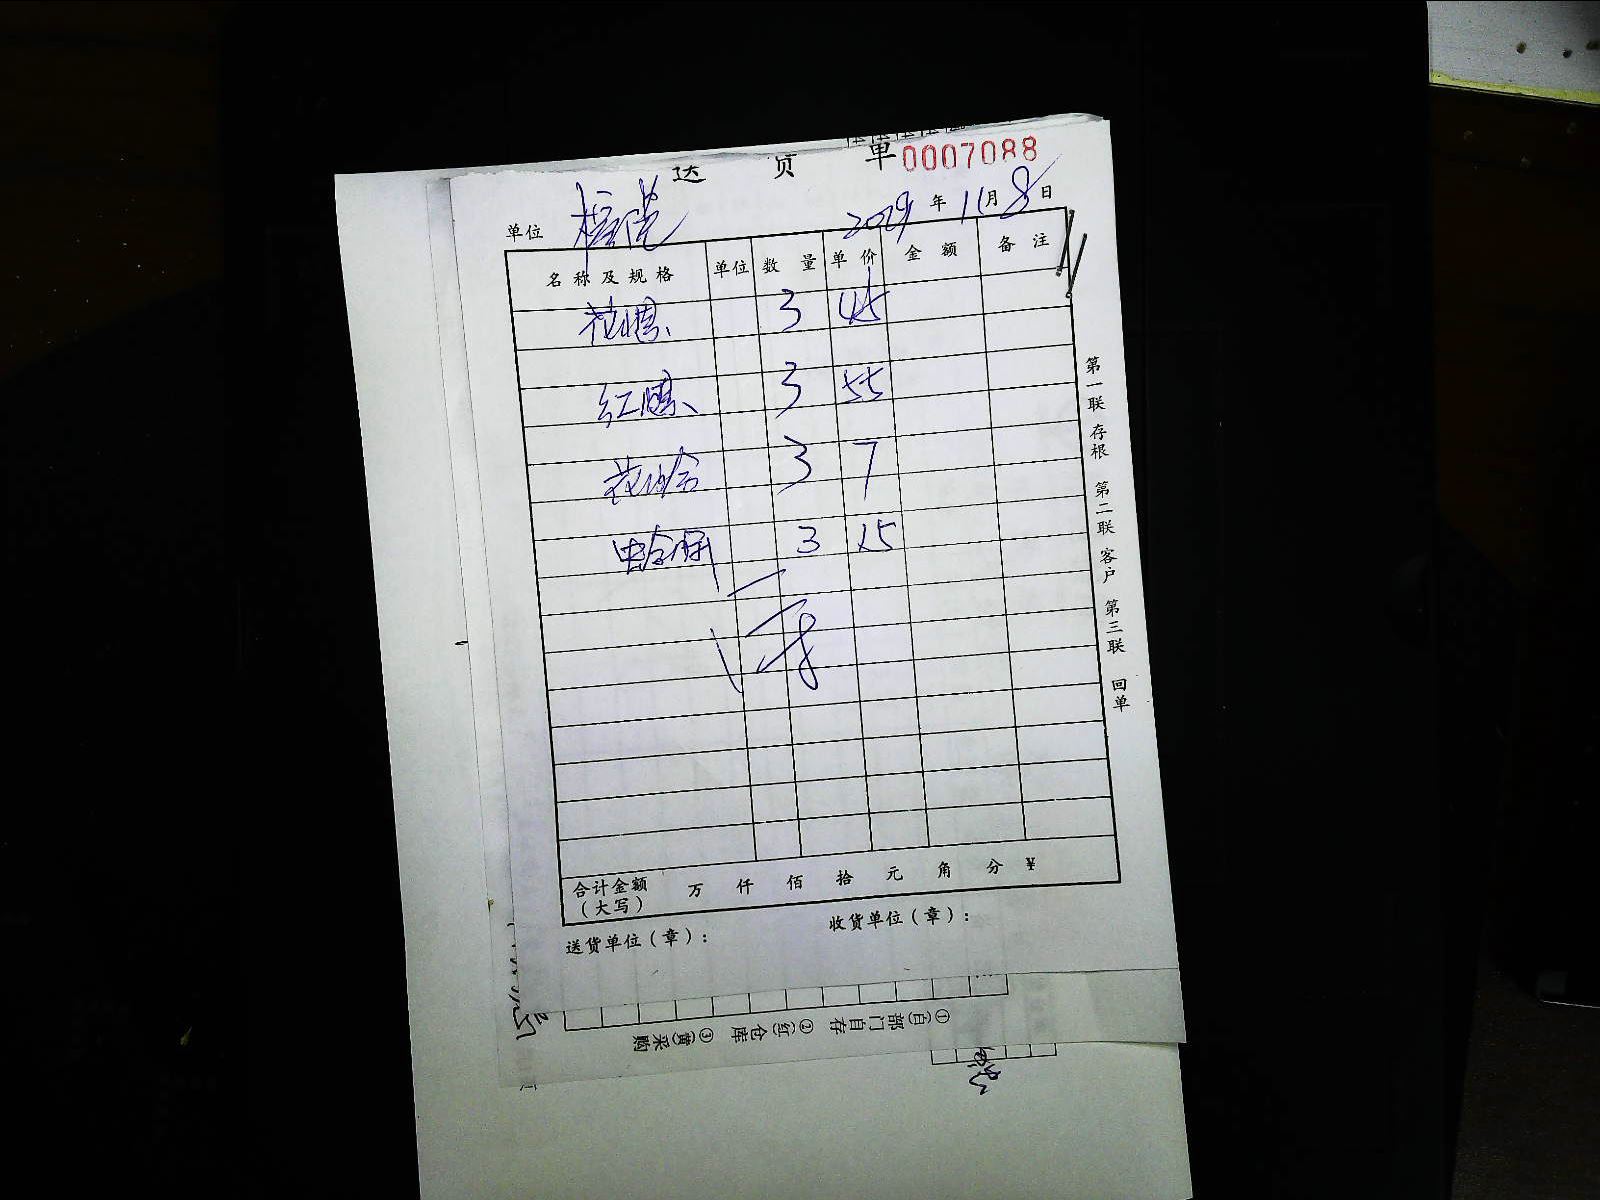 送 货 单 0007088
单位 年 11月 8日
名称及规格 单位 数量 单价 金额 备注
花螺 3 45
红螺 3 55
花蛤 3 7
3 15
合计金额(大写) 万 仟 佰 拾 元 角 分 ¥
送货单位(章): 收货单位(章):
第一联 存根 第二联 客户 第三联 回单
①(白)部门自存 ②(红)仓库 ③(黄)采购